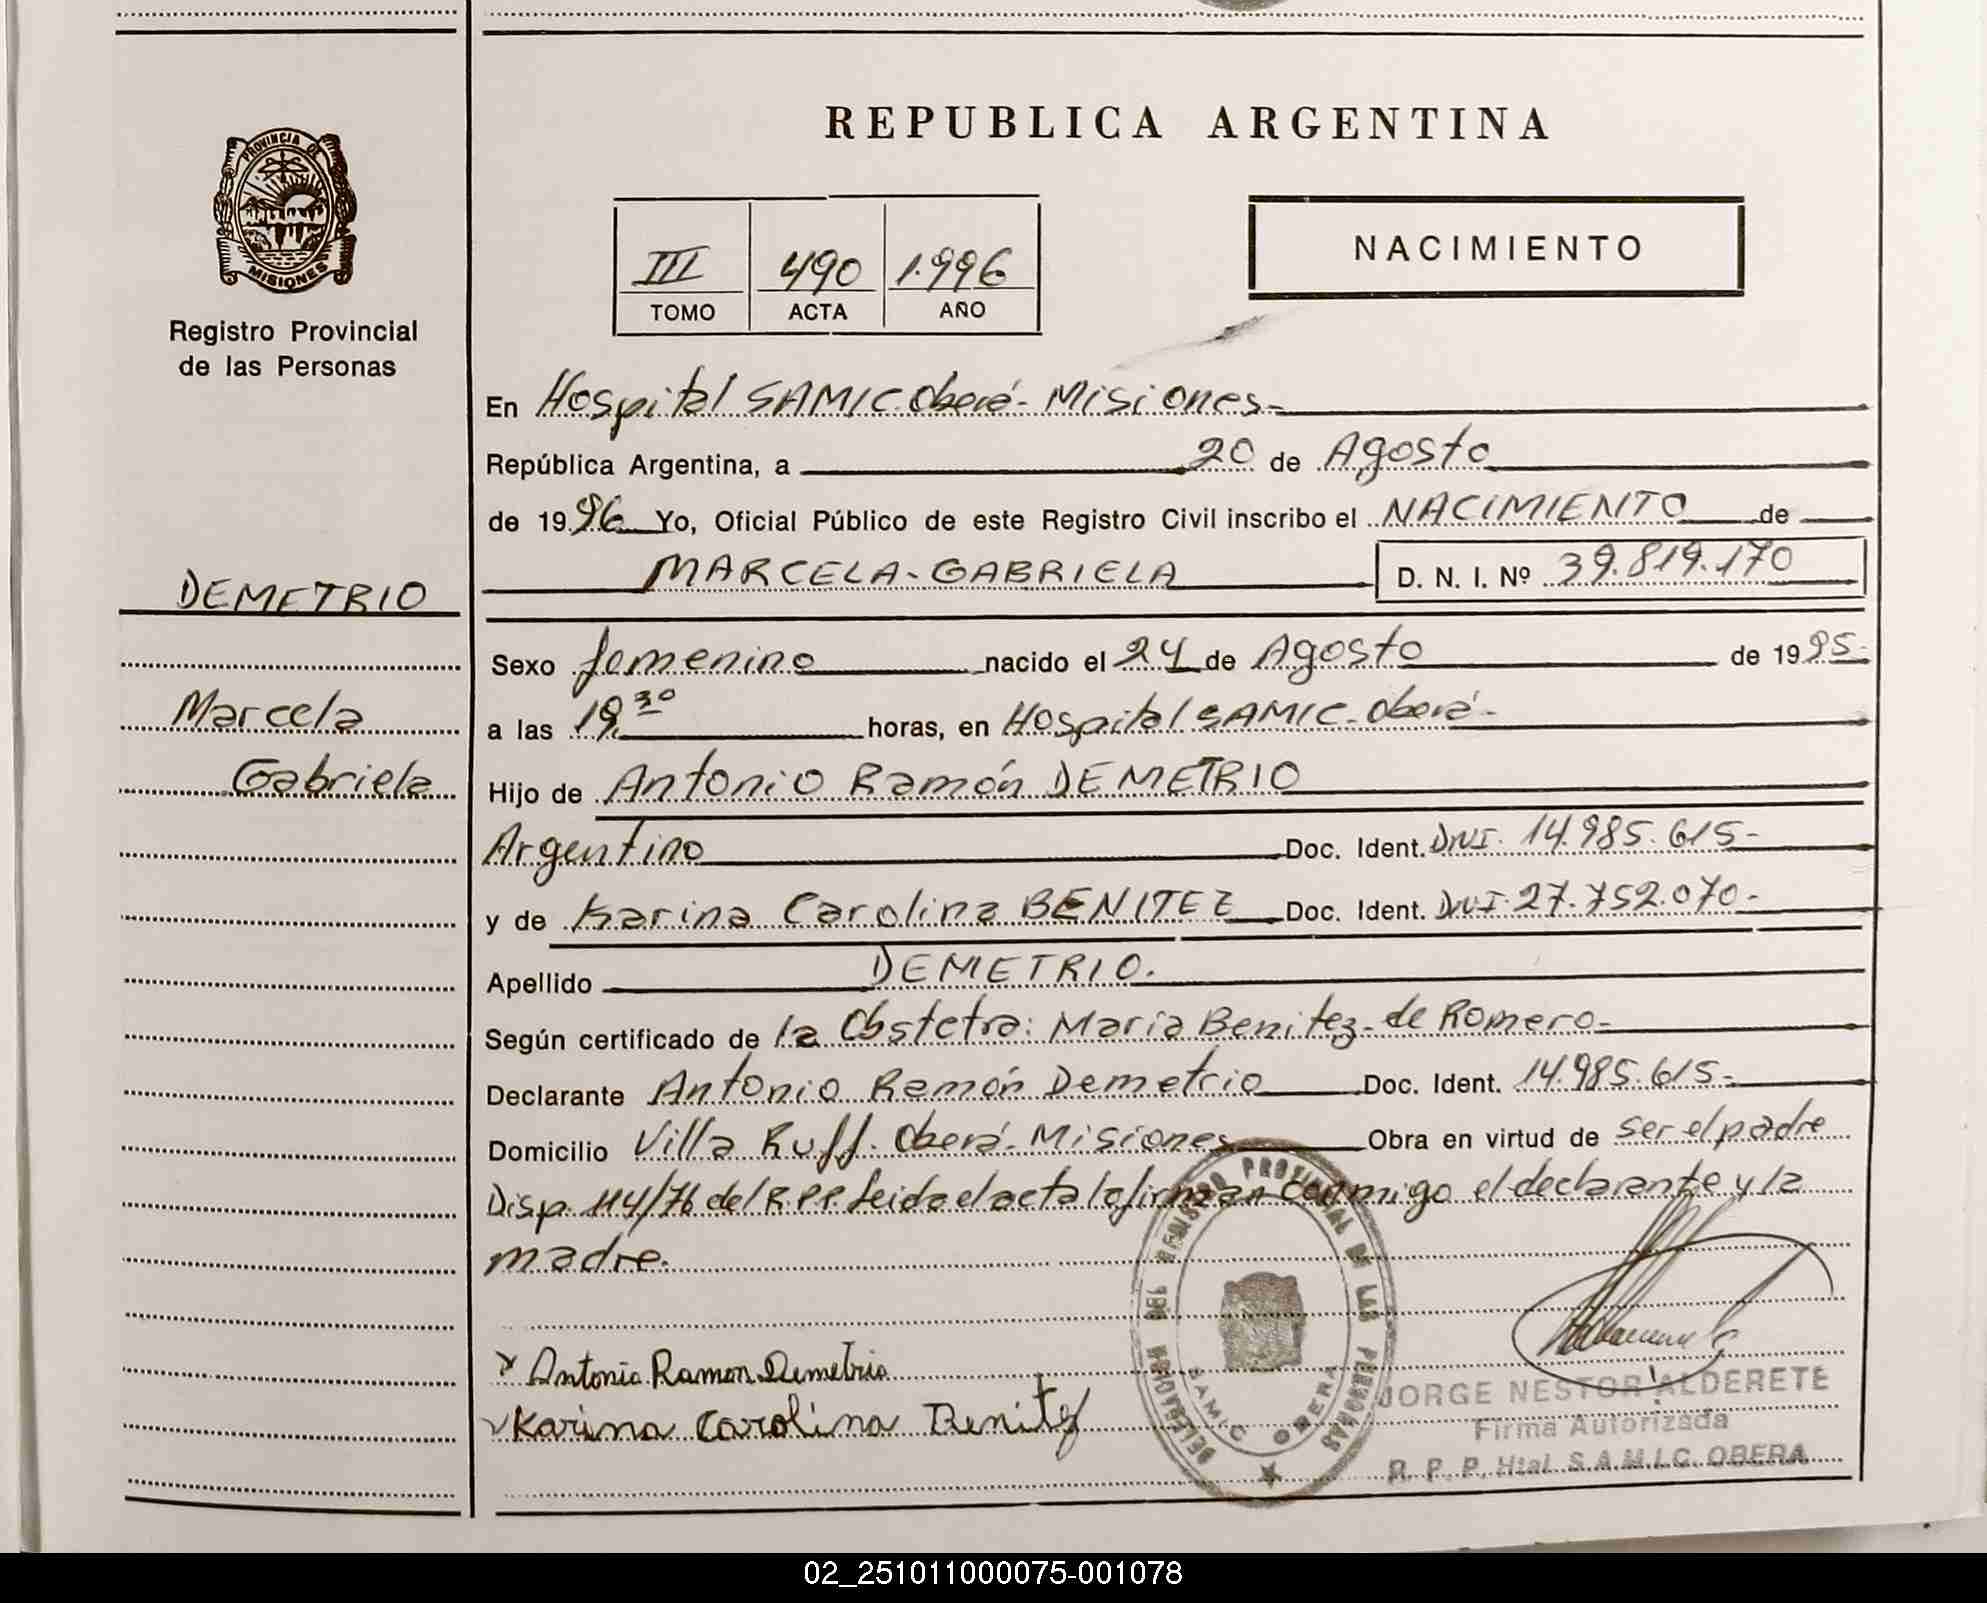 PROVINCIA DE
MISIONES
Registro Provincial
de las Personas
DEMETRIO
Marcela
Gabriela
REPUBLICA ARGENTINA
III 490 1.996
TOMO ACTA AÑO
NACIMIENTO
En Hospital SAMIC. Oberá - Misiones -
República Argentina, a 20 de Agosto
de 1996 Yo, Oficial Público de este Registro Civil inscribo el NACIMIENTO de
MARCELA - GABRIELA D. N. I. Nº 39.819.170
Sexo femenino nacido el 24 de Agosto de 1995-
a las 19,30 horas, en Hospital SAMIC - Oberá -
Hijo de Antonio Ramón DEMETRIO
Argentino Doc. Ident. DNI. 14.985.615-
y de Karina Carolina BENITEZ Doc. Ident. DNI 27.752.070-
Apellido DEMETRIO.
Según certificado de la Obstetra: Maria Benitez - de Romero -
Declarante Antonio Ramón Demetrio Doc. Ident. 14.985.615-
Domicilio Villa Ruff. Oberá - Misiones Obra en virtud de ser el padre
Disp. 114/76 del R.P.P. Leida el acta la firman conmigo el declarante y la
madre.
Antonio Ramon Demetrio
Karina Carolina Benitez
REGISTRO PROVINCIAL DE LAS PERSONAS
DELEGACION
SAMIC OBERA
JORGE NESTOR ALDERETE
Firma Autorizada
R. P. P. Htal. S.A.M.I.C. OBERA
02_251011000075-001078